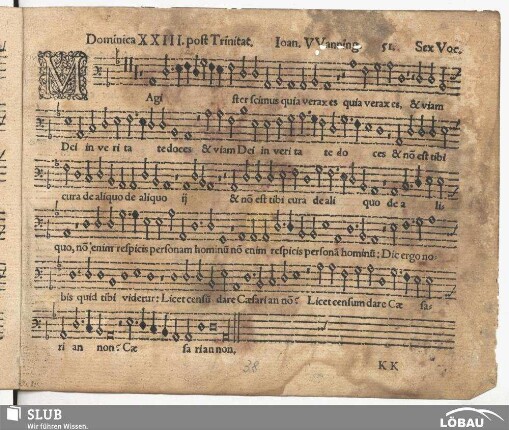 Dominica XXIII. post Trinitat. Ioan. VVanning. 51. Sex Voc.
M
Agi ster scimus quia verax es quia verax es, & viam
Dei in veri ta te doces & viam Dei in veri ta te do ces & nō est tibi
cura de aliquo de aliquo ij & nō est tibi cura de ali quo de a li-
quo, nō enim respicis personam hominū nō enim respicis personā hominū: Dic ergo no-
bis quid tibi videtur: Licet censū dare Cæsari an nō? Licet censum dare Cæ sa-
ri an non? Cæ sari an non.
38
KK
SLUB
Wir führen Wissen.
LÖBAU